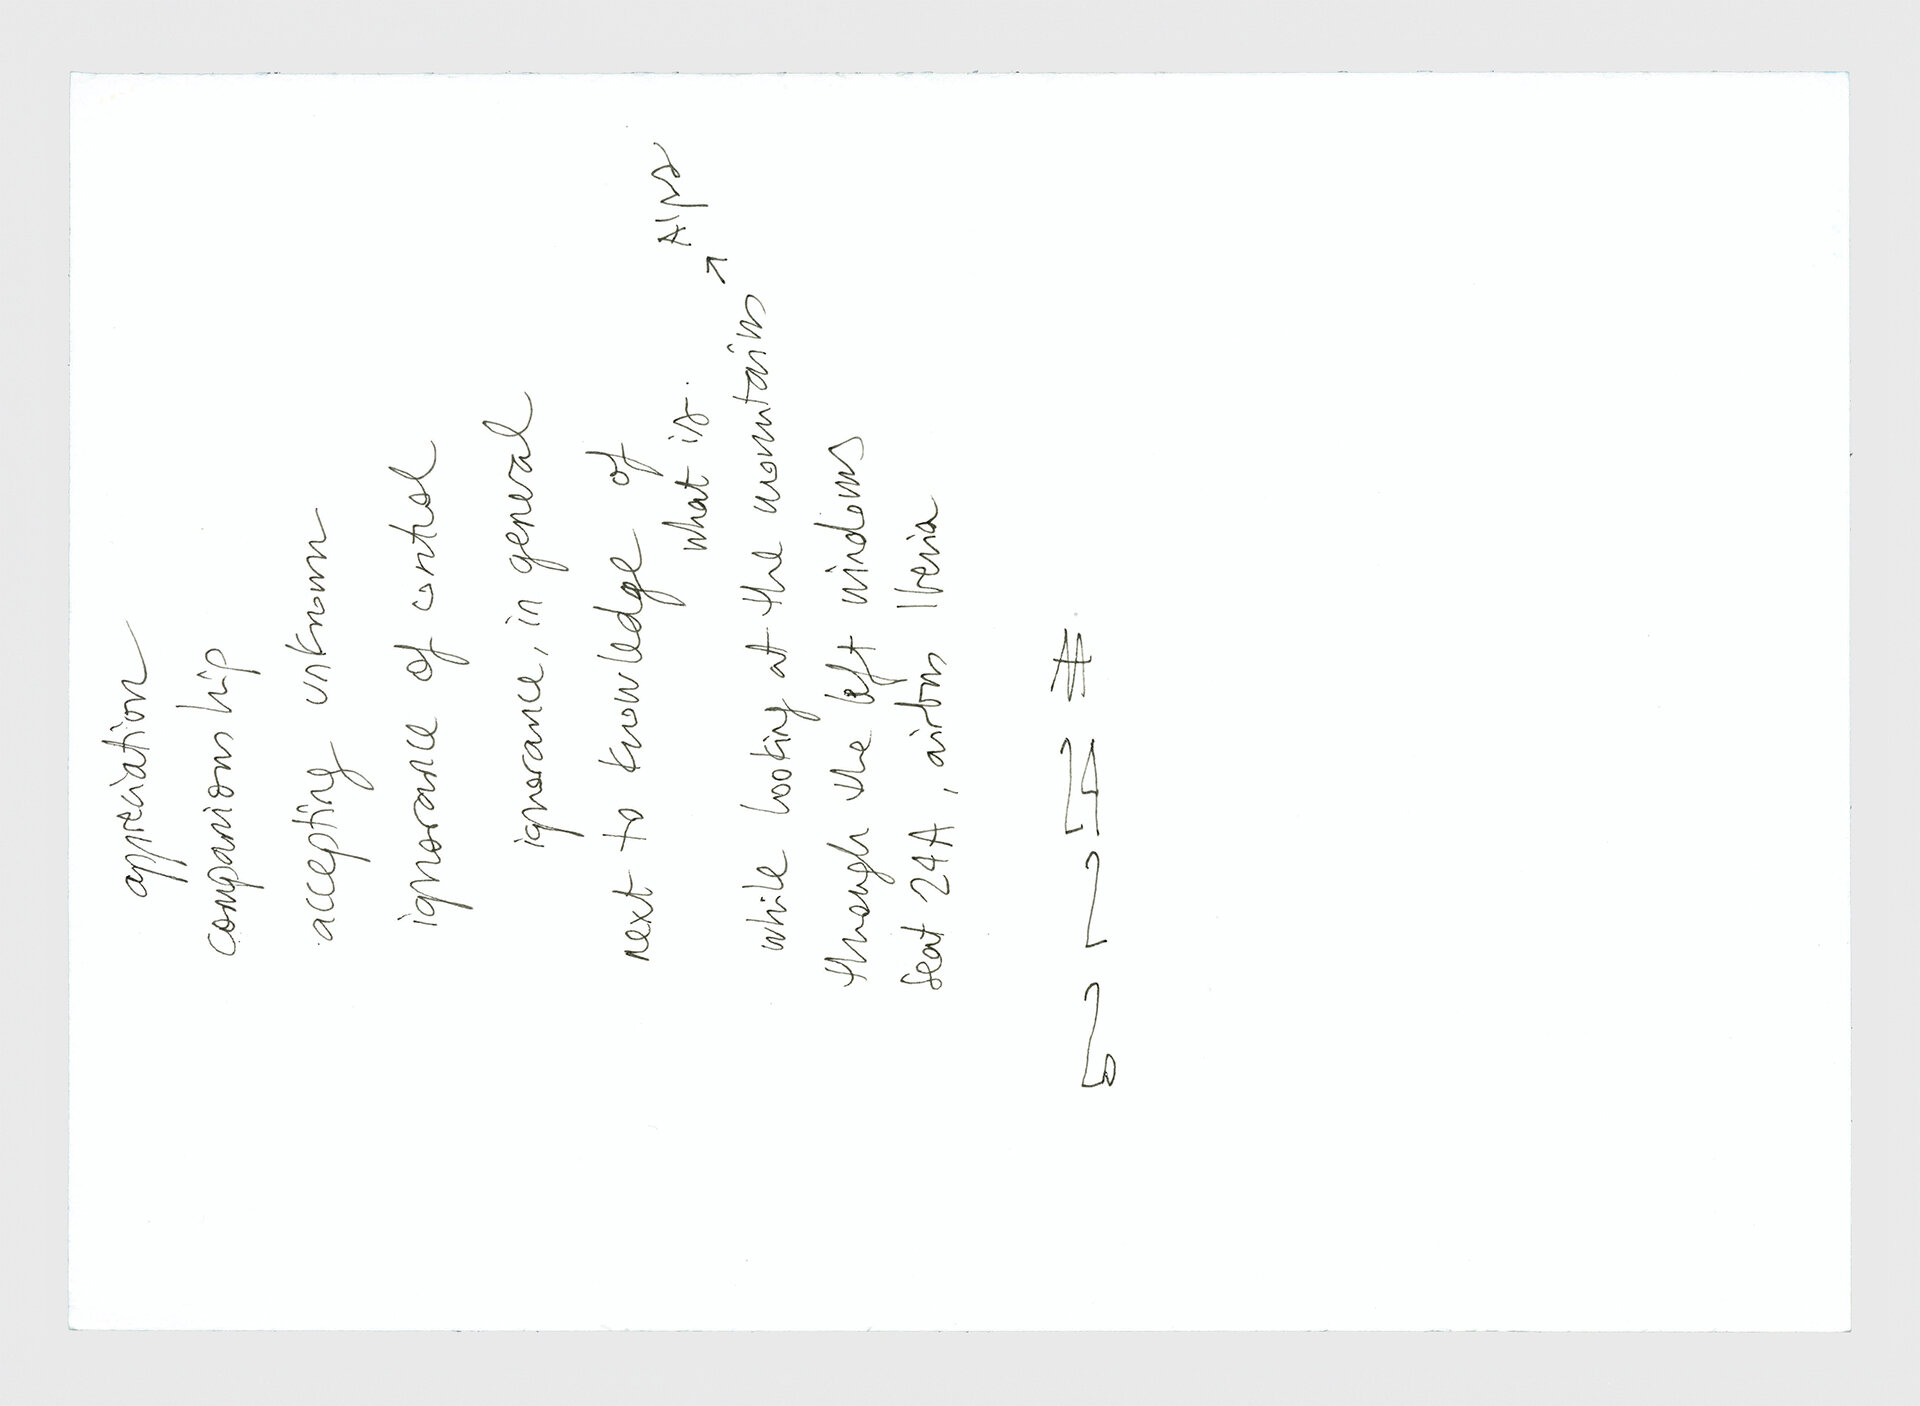 appreciation
companionship
accepting unknown
ignorance of control
ignorance, in general
next to knowledge of
what is.
while looking at the mountains ↗ Alps
through the left windows
seat 24A, airbus Iberia